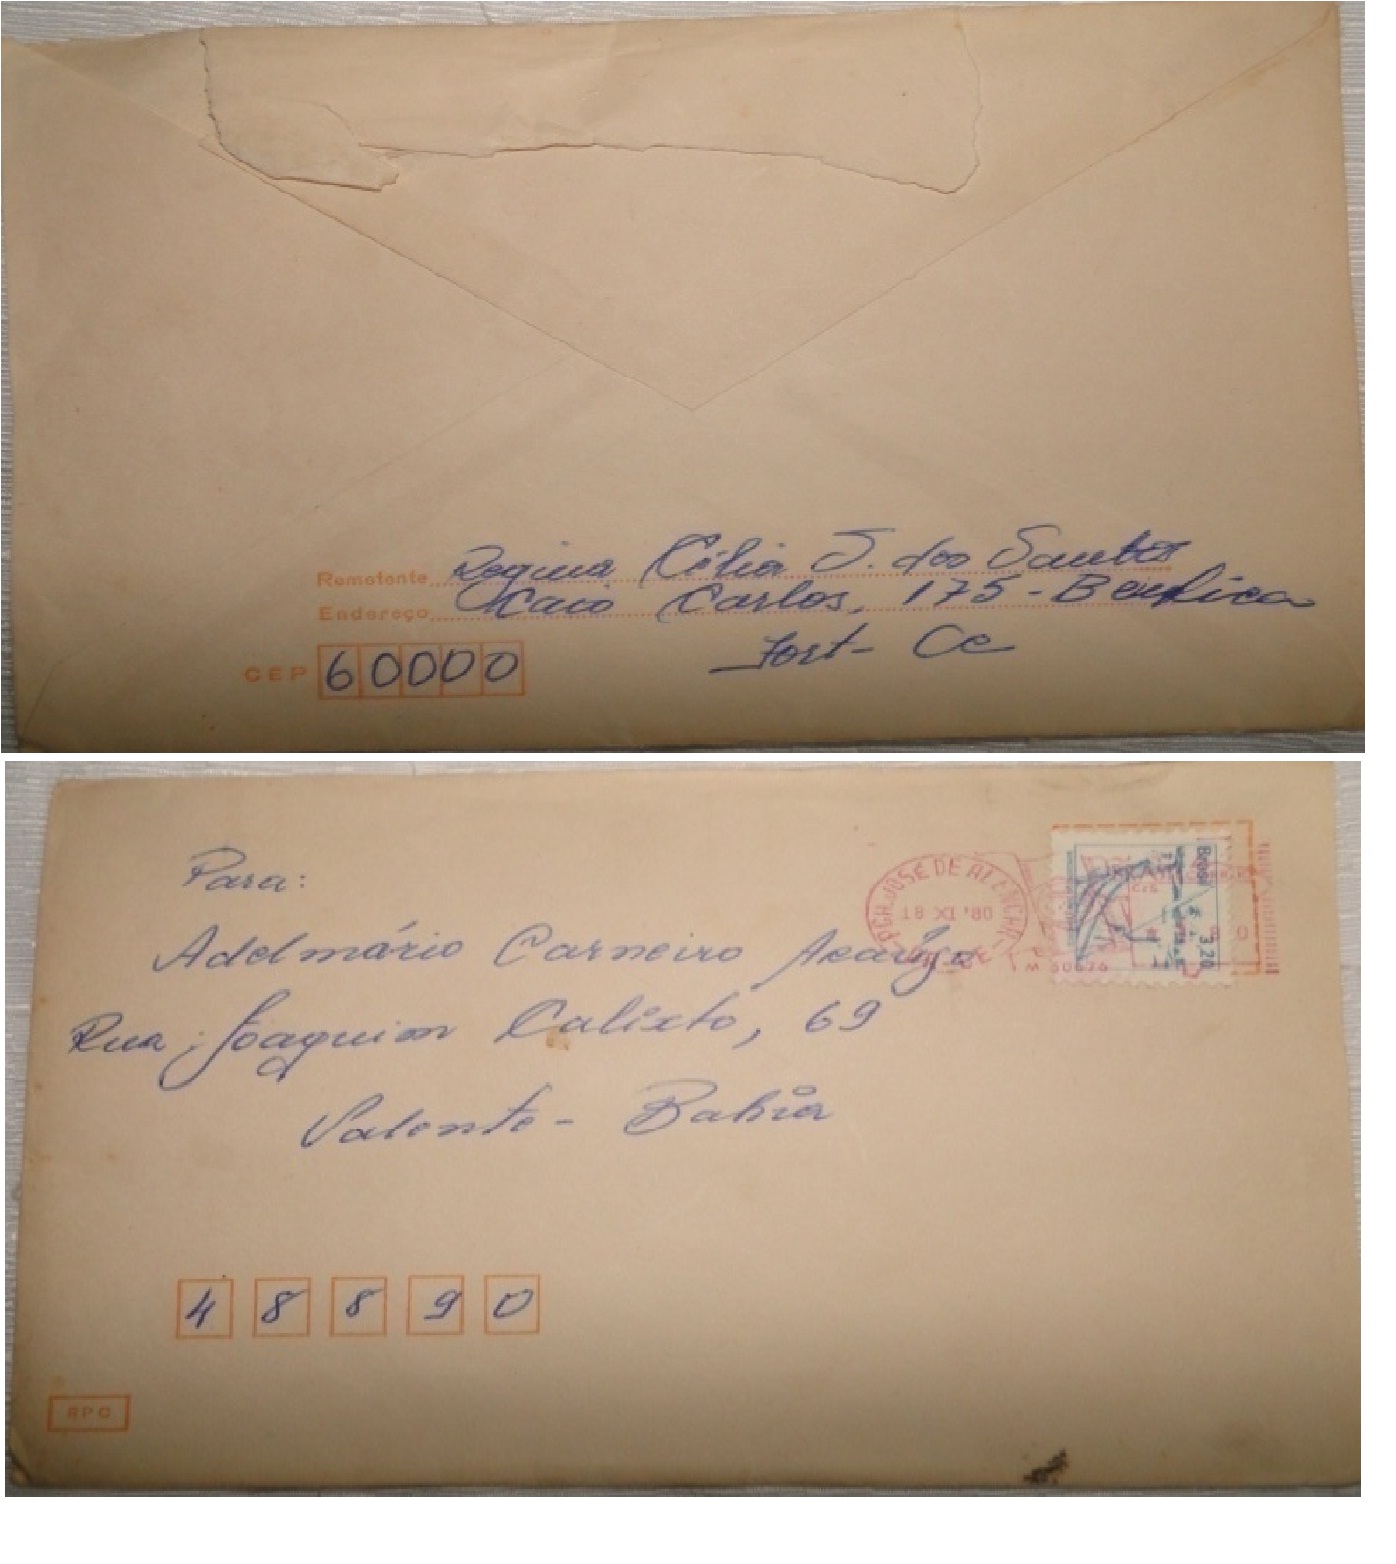 Remetente Regina Célia S. dos Santos
Endereço Caio Carlos, 175 - Benfica
Fort - Ce
CEP 60000
Para:
Adelmário Carneiro Araújo
Rua; Joaquim Calixto, 69
Valente - Bahia
48890
RPC
AGH. JOSÉ DE ALENCAR
08. IX 81
BRASIL
Brasil 3,20